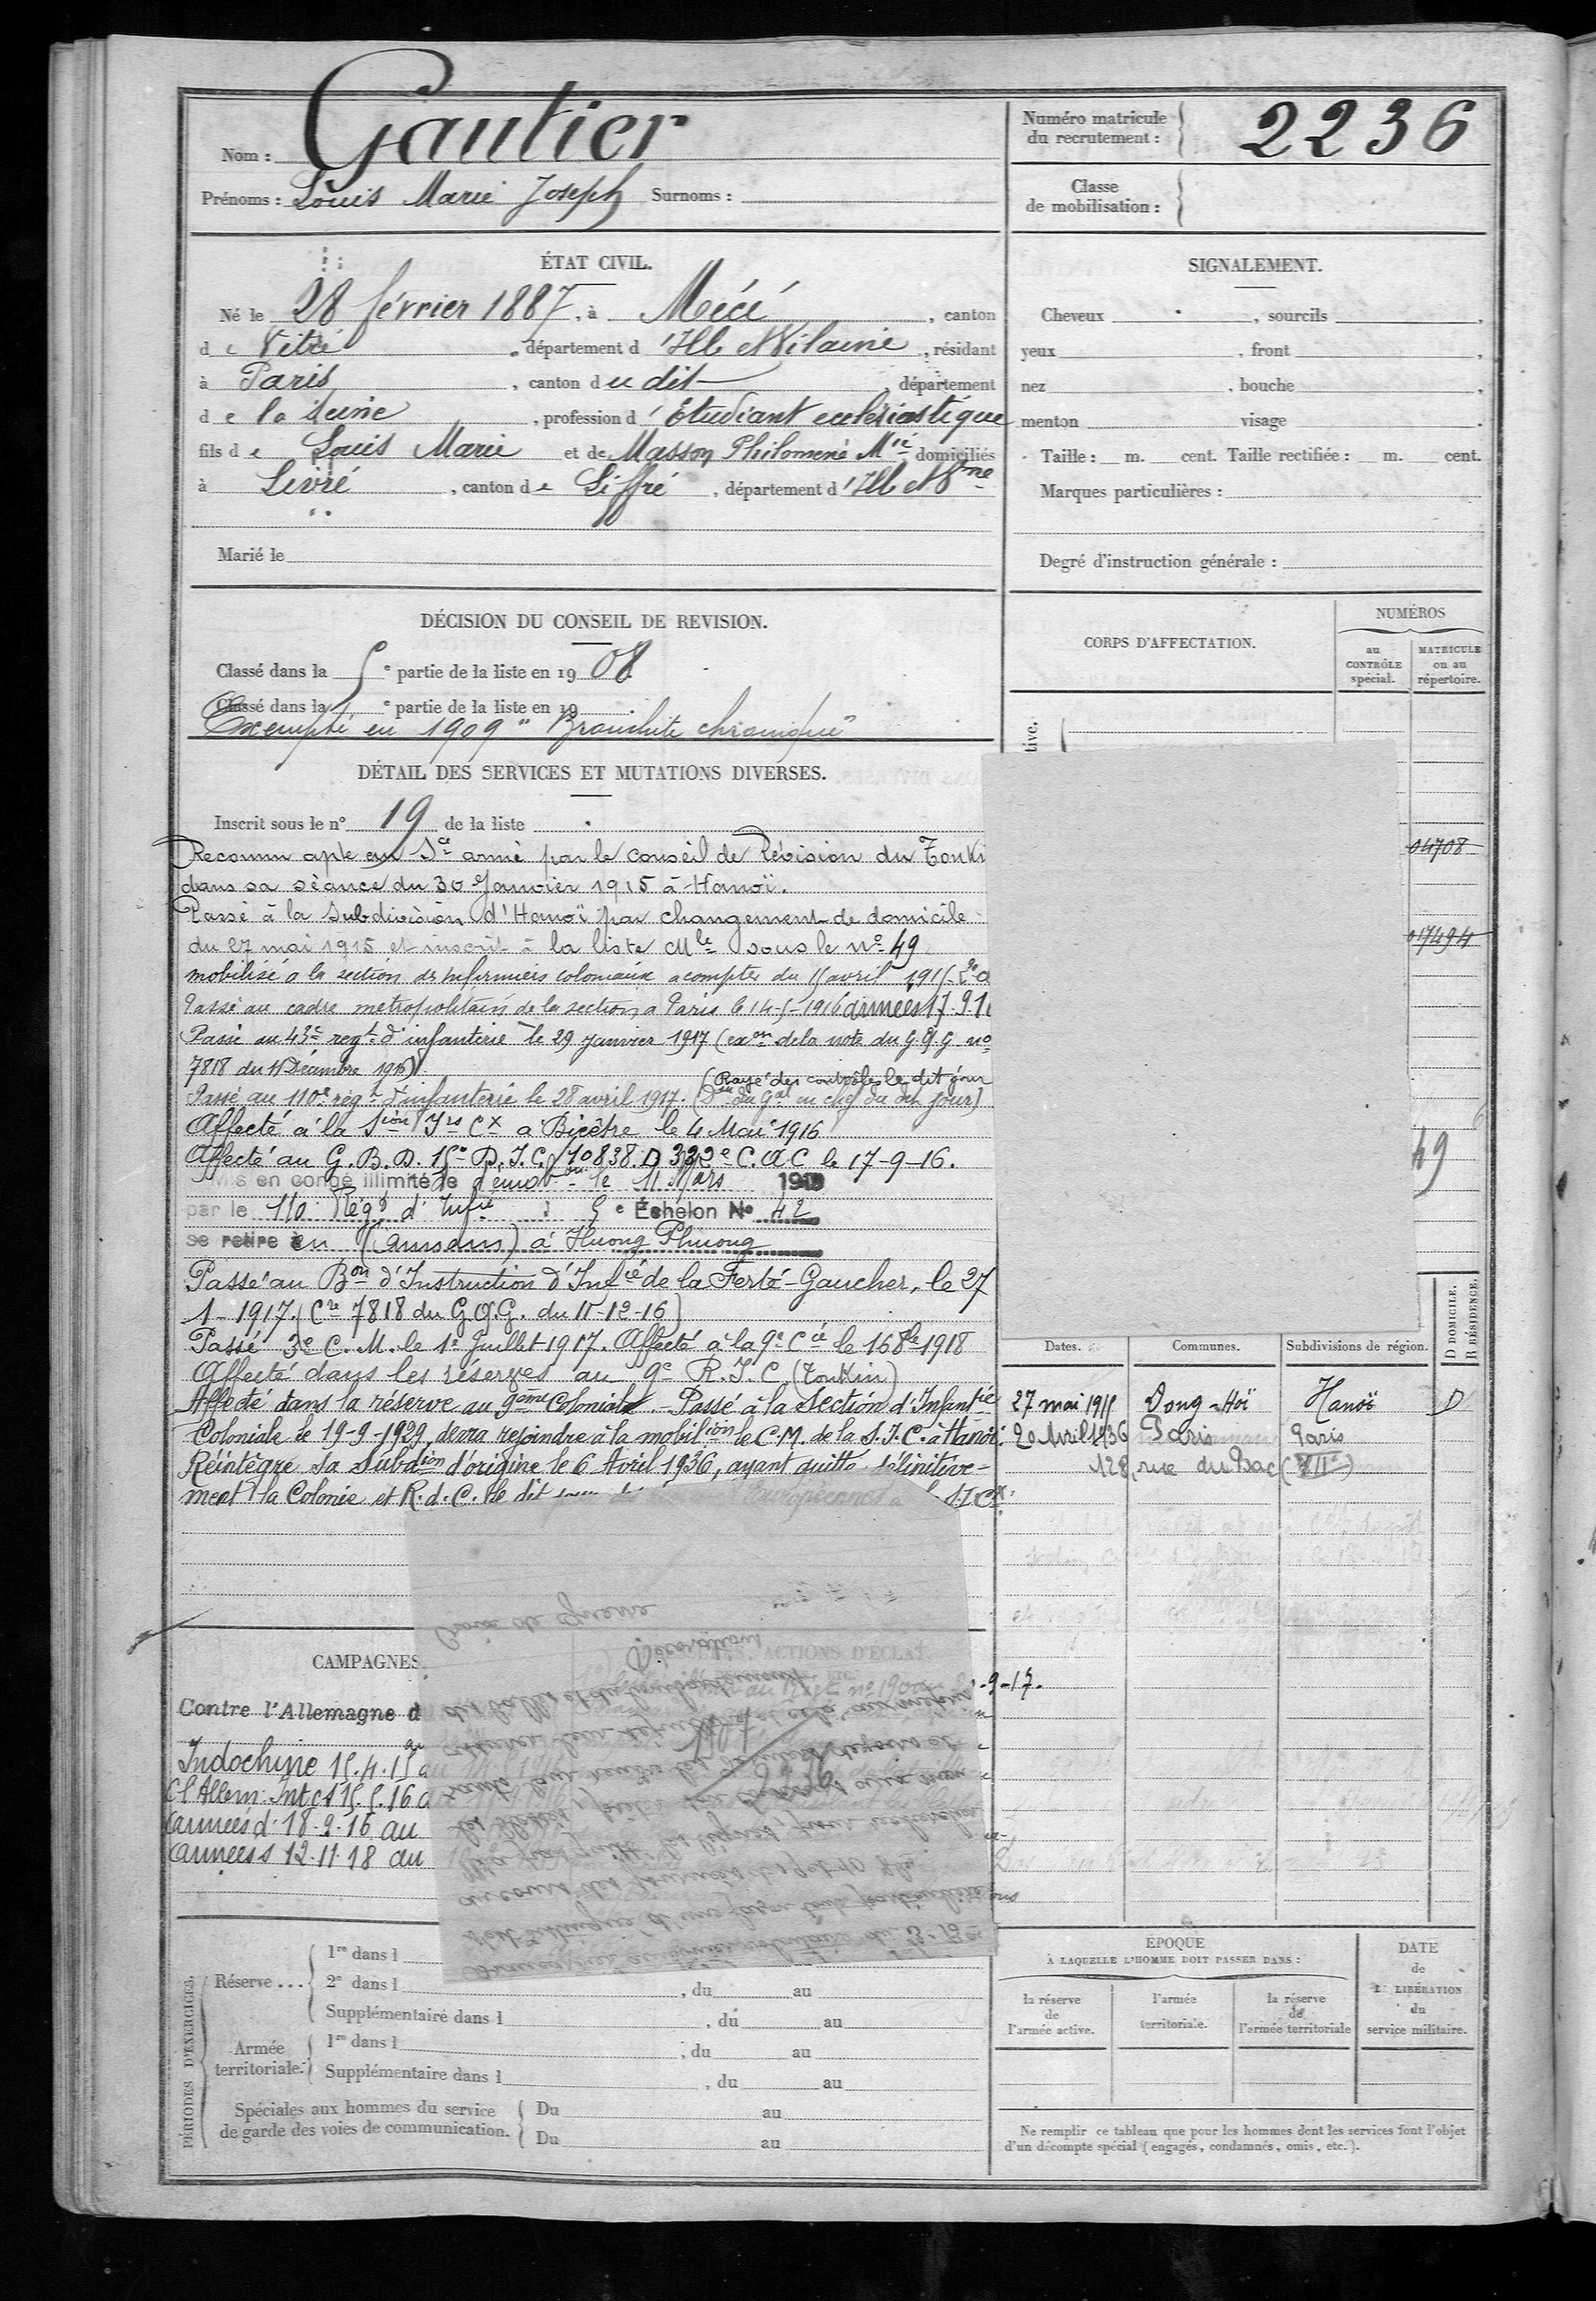 Nom : Gautier
Prénoms : Louis Marie Joseph Surnoms :
Numéro matricule
du recrutement : 2236
Classe
de mobilisation :
ÉTAT CIVIL.
Né le 28 février 1887, à Mécé, canton
de Vitré, département d'Ille et Vilaine, résidant
à Paris, canton du dit, département
de la Seine, profession d'Etudiant ecclésiastique
fils de Louis Marie et de Masson Philomène Mie domiciliés
à Livré, canton de Liffré, département d'Ille et Vne
Marié le
SIGNALEMENT.
Cheveux , sourcils ,
yeux , front ,
nez , bouche ,
menton visage .
Taille : m. cent. Taille rectifiée : m. cent.
Marques particulières :
Degré d'instruction générale :
DÉCISION DU CONSEIL DE REVISION.
Classé dans la 5e partie de la liste en 1908.
Classé dans la e partie de la liste en 19 .
Exempté en 1909 "Bronchite chronique"
CORPS D'AFFECTATION.
NUMÉROS
au
CONTRÔLE
spécial.
MATRICULE
ou au
répertoire.
tive.
04708
017494
49
DÉTAIL DES SERVICES ET MUTATIONS DIVERSES.
Inscrit sous le n° 19 de la liste
Reconnu apte au Sce armé par le conseil de Révision du Tonki
dans sa séance du 30 Janvier 1915 à Hanoï.
Passé à la subdivision d'Hanoï par changement de domicile
du 27 mai 1915 et inscrit à la liste Mle sous le N° 49.
mobilisé à la section des infirmiers coloniaux à compter du 15 avril 1915
Passé au cadre métropolitain de la section à Paris le 14-5-1916 armées 17.9.1
Passé au 43e regt d'infanterie le 29 janvier 1917 (exon de la note du G.Q.G no
7818 du 11 Décembre 1916).
(Rayé des contrôles le dit jour
Passé au 110e régt d'infanterie le 28 avril 1917. (Don du Gal en chef du dit jour)
Affecté à la Sion Irs Cx à Bicêtre le 4 Mai 1916
Affecté au G.B.D. 15e D.I.C. 10838.D 332e C.A.C le 17-9-16.
Mis en congé illimité de démobon le 11 Mars 1919
par le 110 Régt d'Infie 5e Échelon No 42
se retire en (Annam) à Huong Phuong
Passé au Bon d'Instruction d'Infie de la Ferté-Gaucher, le 27
1-1917. (Cre 7818 du G.Q.G. du 11-12-16)
Passé 3e C.M. le 1er Juillet 1917. Affecté à la 9e Cie le 16 8bre 1918
Affecté dans les réserves au 9e R.I.C. (Tonkin)
Affecté dans la réserve au 9ème Colonial. - Passé à la Section d'Infantie
Coloniale le 19-9-1929, devra rejoindre à la mobilion le C.M. de la S.I.C. à Hanoï.
Réintègre sa Subdion d'origine le 6 Avril 1936, ayant quitté définitive-
ment la Colonie et R.d.C. le dit jour des Européennes S.I.Cx
Dates. Communes. Subdivisions de région. D DOMICILE. R RÉSIDENCE.
27 mai 1915 Dong-Hoï Hanoï D
20 Avril 1936 Paris Paris
128, rue du Bac (VIIe)
CAMPAGNES.
ACTIONS D'ÉCLAT,
Croix de guerre
Décorations
-9-17.
Contre l'Allemagne d
au
Indochine 15.4.15 au
Ct Allem: Int ct 15.5.16 a
(armées d. 18.9.16 au
Armées 12.11.18 au
PÉRIODES D'EXERCICES.
Réserve ...
1re dans l
2e dans l , du au
Supplémentaire dans l , du au
Armée
territoriale.
1re dans l , du au
Supplémentaire dans l , du au
Spéciales aux hommes du service
de garde des voies de communication.
Du au
Du au
ÉPOQUE
À LAQUELLE L'HOMME DOIT PASSER DANS :
la réserve
de
l'armée active.
l'armée
territoriale.
la réserve
de
l'armée territoriale
DATE
de
LA LIBÉRATION
du
service militaire.
Ne remplir ce tableau que pour les hommes dont les services font l'objet
d'un décompte spécial (engagés, condamnés, omis, etc.).